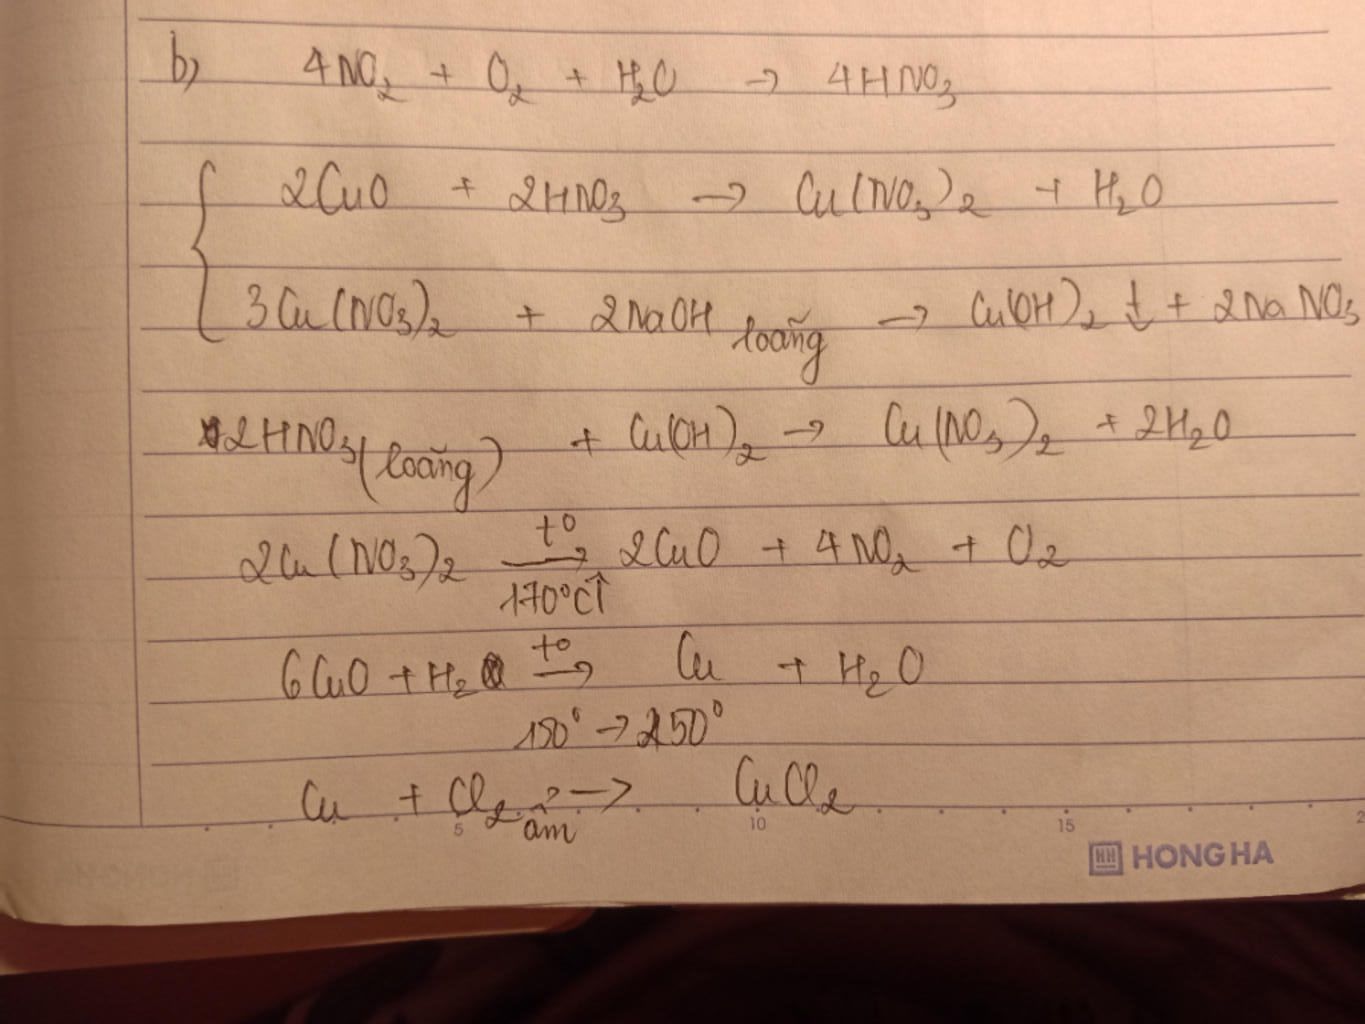 b) 4NO₂ + O₂ + H₂O → 4HNO₃
2CuO + 2HNO₃ → Cu(NO₃)₂ + H₂O
3Cu(NO₃)₂ + 2NaOH loãng → Cu(OH)₂ ↓ + 2NaNO₃
2HNO₃(loãng) + Cu(OH)₂ → Cu(NO₃)₂ + 2H₂O
t⁰
2Cu(NO₃)₂ → 2CuO + 4NO₂ + O₂
170°C↑
t⁰
6CuO + H₂ → Cu + H₂O
150° → 250°
Cu + Cl₂ ẩm → CuCl₂
5 10 15 2
HH HONG HA